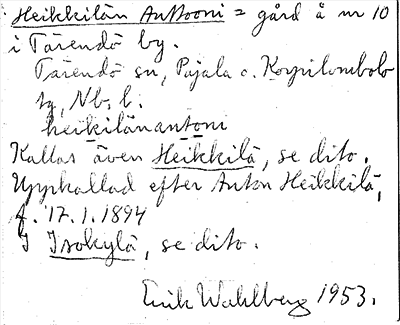 Heikkilän Anttooni = gård å nr 10
i Tärendö by.
Tärendö sn, Pajala o. Korpilombolo
tg, Nb. l.
heikilänantoni
Kallas även Heikkilä, se dito.
Uppkallad efter Anton Heikkilä,
f. 17.1.1894
I Isokylä, se dito.
Erik Wahlberg 1953.